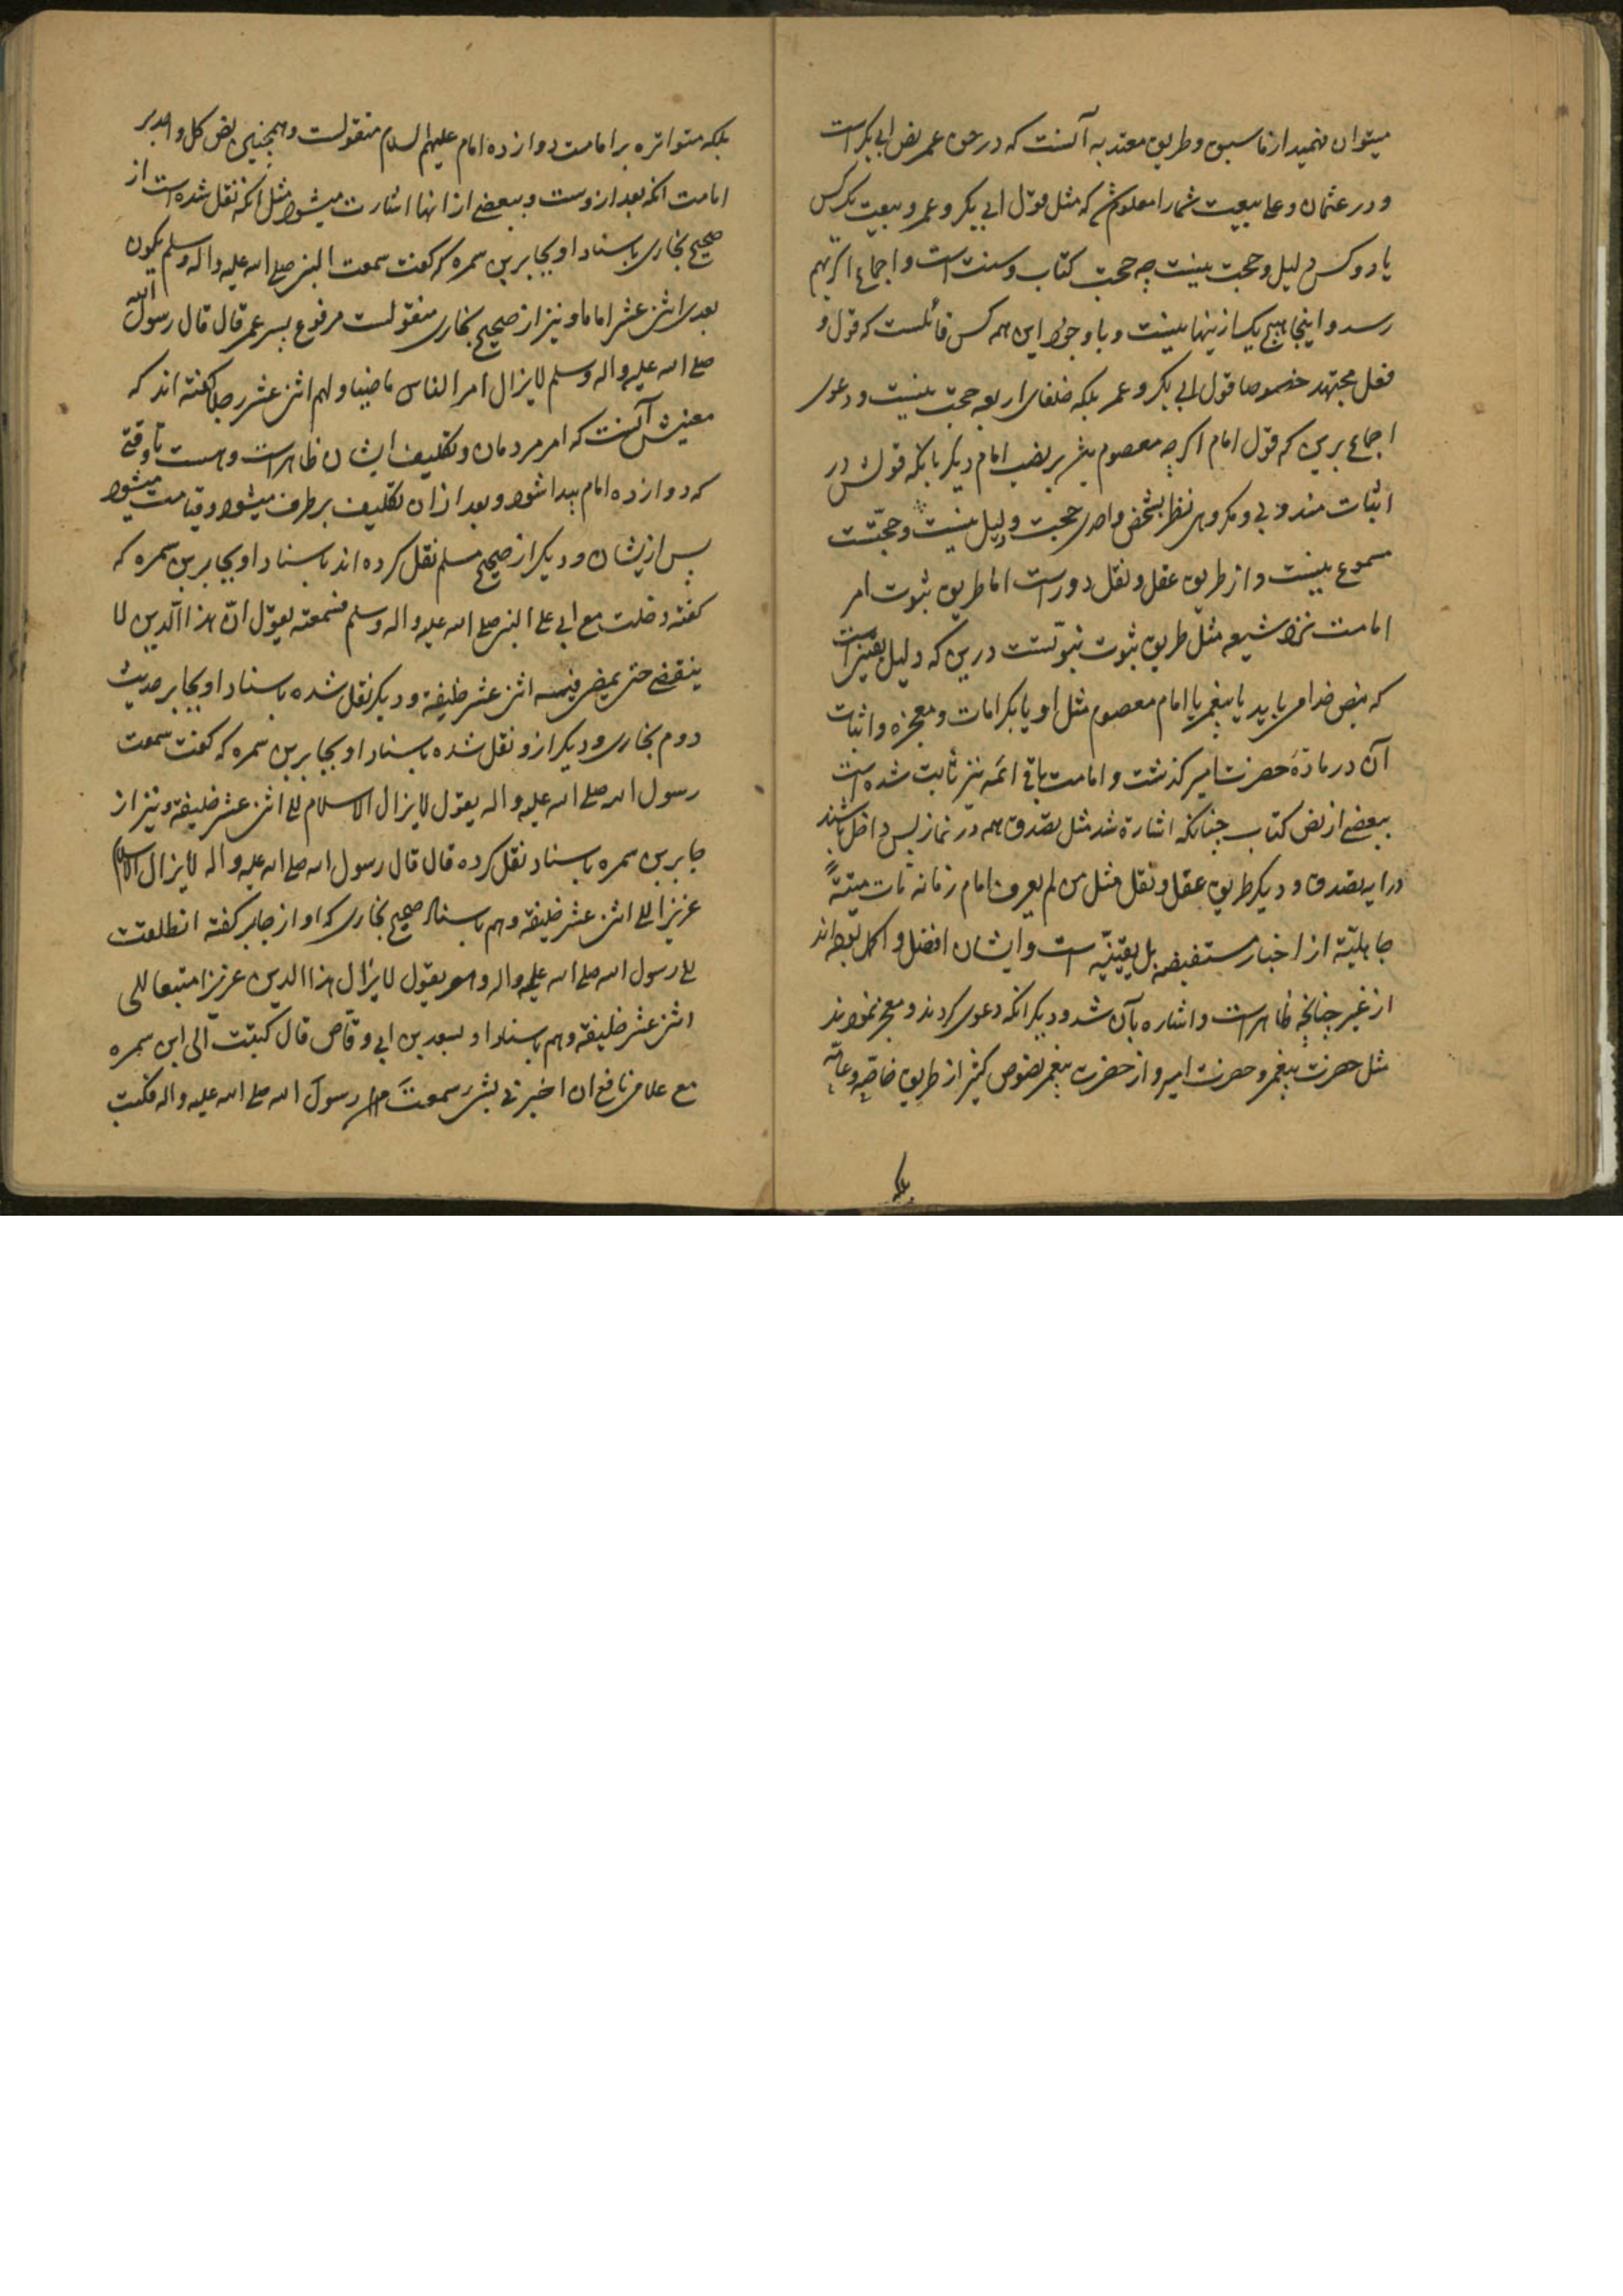 میتوان فهمید از ماسبق و طریق معتد به آنست که در حق عمر نص ابی بکر است
و در عثمان و علی بیعیت شما را معلوم شد که مثل قول ابی بکر و عمر و بیعت یک کس
یا دو کس دلیل و حجت نیست چه حجت کتاب و سنت است و اجماع اگر بهم
رسد و اینجا هیچ یک از ینها نیست و با وجود این همه کس قائلست که قول و
فعل مجتهد خصوصا قول ابی بکر و عمر بلکه خلفای اربعه حجت نیست و دعوی
اجماع برین که قول امام اگر چه معصوم نباشد بر نصب امام دیگر با نکه قولش در
اثبات مندوبی و مکروهی نظر بشخص واحدی حجت و دلیل نیست و حجتست
مسموع نیست و از طریق عقل و نقل دور است اما طریق ثبوت امر
امامت نزد شیعه مثل طریق ثبوت نبوتست درین که دلیل یقینی است
که بنص خدا می باید یا پیغمبر یا امام معصوم مثل او یا بکرامات و معجزه و اثبات
آن در مادۀ حضرت امیر گذشت و امامت باقی ائمه نیز ثابت شده است
ببعضی از نص کتاب چنانکه اشارة شد مثل تصدق همه در نماز پس داخل باشند
در ایه تصدق و دیگر طریق عقل و نقل مثل من لم یعرف امام زمانه مات میتةً
جاهلیّة از اخبار مستفیضه بل یقینیّه است و ایشان افضل و اکمل بوده اند
از غیر چنانچه ظاهر است و اشاره بآن شد و دیگر انکه دعوی کردند و معجز نمودند
مثل حضرت پیغمبر و حضرت امیر و از حضرت پیغمبر نصوص کثیر از طریق خاصّه و عامّه
بلکه
بلکه متواتره بر امامت دوازده امام علیهم السلام منقولست و همچنین نص کل واحد بر
امامت انکه بعد ازوست و ببعضی از انها اشارت میشود مثل انکه نقل شده است از
صحیح بخاری باسناد او بجابر بن سمره که گفت سمعت النبی صلی الله علیه و اله و سلم یکون
بعدی اثنی عشر اماما و نیز از صحیح بخاری منقولست مرفوع بپسر عمر قال قال رسول الله
صلی الله علیه و اله و سلم لا یزال امر الناس ماضیا و لهم اثنی عشر رجلا گفته اند که
معنیش آنست که امر مردمان و تکلیف ایشان ظاهر است و هست تا وقتی
که دوازده امام پیدا شود و بعد از ان تکلیف بر طرف میشود و قیامت میشود
پس از یشان و دیگر از صحیح مسلم نقل کرده اند باسناد او بجابر بن سمره که
گفته دخلت مع ابی علی النبی صلی الله علیه و اله و سلم فسمعته یقول انّ هذا الدین لا
ینقضی حتی یمضی فیهم اثنی عشر خلیفة و دیگر نقل شده باسناد او بجابر حدیث
دوم بخاری و دیگر ازو نقل شده باسناد او بجابر بن سمره که گفت سمعت
رسول الله صلی الله علیه و اله یقول لا یزال الاسلام الی اثنی عشر خلیفة و نیز از
جابر بن سمره باسناد نقل کرده قال قال رسول الله صلی الله علیه و اله لا یزال الاسلام
عزیزا الی اثنی عشر خلیفة و هم باسناد صحیح بخاری که او از جابر گفته انطلقت
الی رسول الله صلی الله علیه و اله و هو یقول لا یزال هذا الدین عزیزا متبعا الی
اثنی عشر خلیفة و هم باسناد او بسعد بن ابی وقّاص قال کتبت الی ابن سمره
مع غلامی نافع ان اخبرنی بشیء سمعتَ من رسول الله صلی الله علیه و اله فکتب